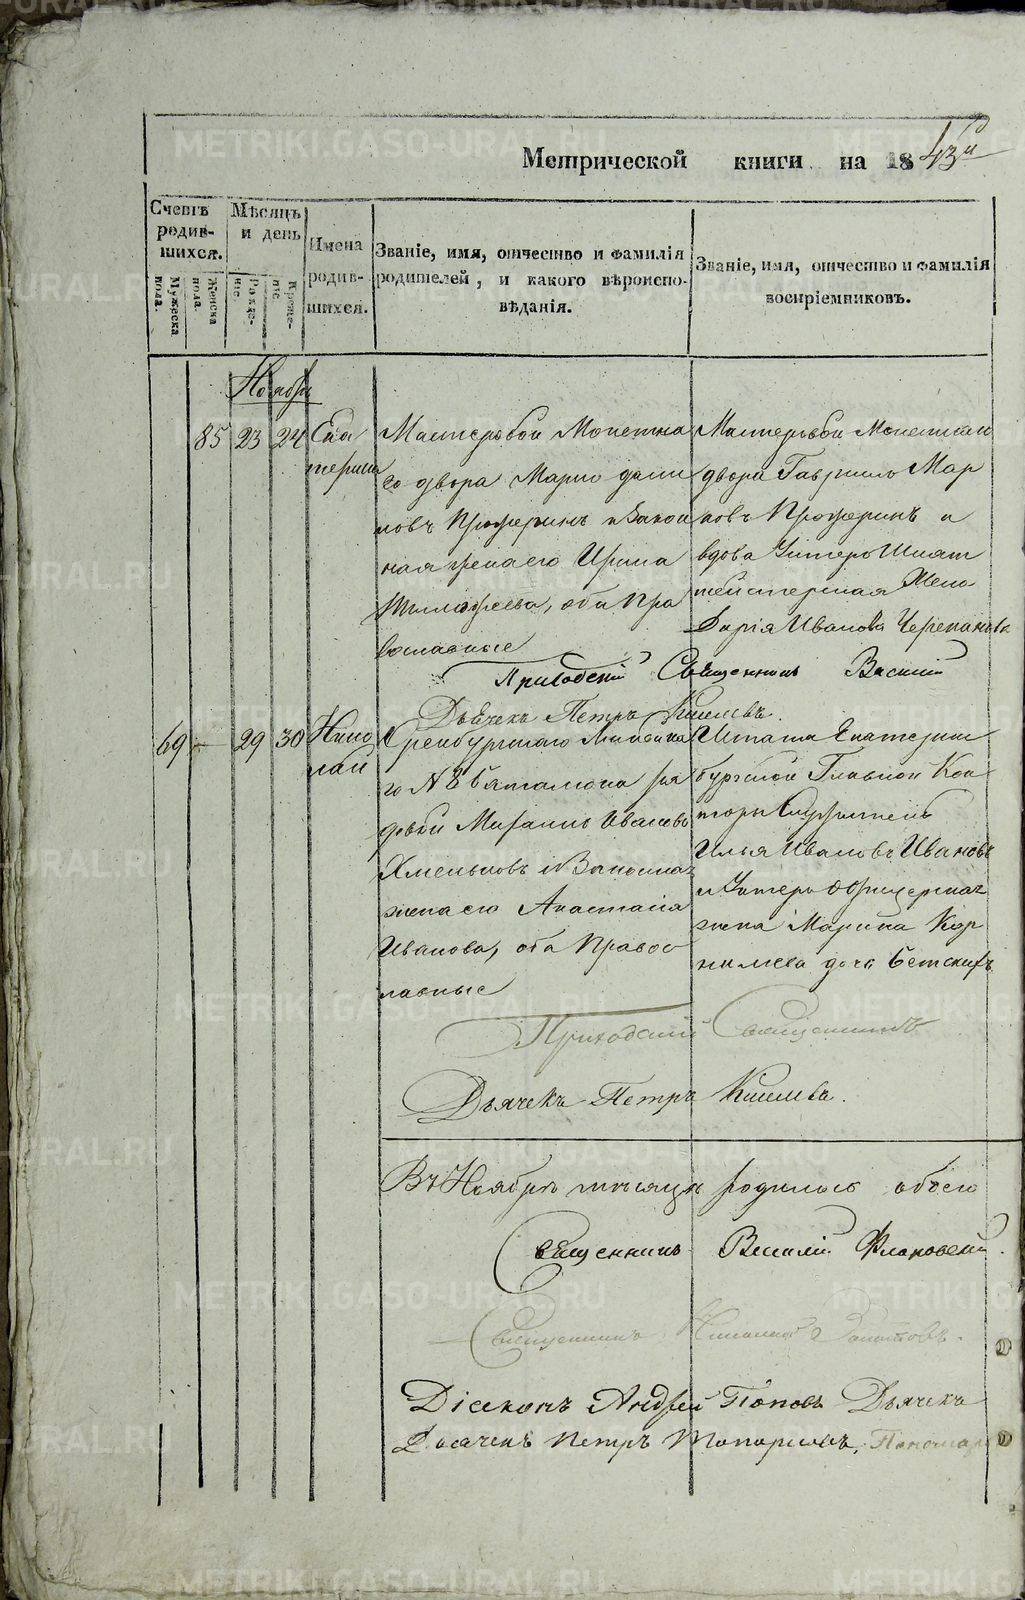 Метрической книги на 1843й
Счетъ родив-шихся.
Мужеска пола.
Женска пола.
Мѣсяцъ и день
Рожде-ніе.
Креще-ніе.
Имена родив-шихся.
Званіе, имя, отчество и фамилія
родителей, и какого вѣроиспо-
вѣданія.
Званіе, имя, отчество и фамилія
воспріемниковъ.
Ноябрь
85 23 24 Ека
терина
Мастеровой Монетна
го двора Марко дани
ловъ и Закон
ная жена его Ирина
оба Пра
вославные
Мастеровой Монетнаго
двора Гаврило Мар
ковъ и
вдова Унтеръ Шихт
мейстерская жена
Дарія Иванова Черепанова
Приходскій Священникъ Василій
Дьячекъ Петръ Киселевъ.
69 – 29 30 Нико
лай
Оренбургскаго Линейна
го № 8 баталіона ря
довой Михаилъ Ивановъ
Хмельновъ и Законная
жена его Анастасія
Иванова, оба Правос
лавные
Штата Екатерин
бургской Главной Кон
торы Служитель
Илья Ивановъ Ивановъ
и Унтеръ Офицерская
жена Марина Кор
нилиева дочь Бетскихъ
Приходскій Священникъ
Дьячекъ Петръ Киселевъ.
Въ Ноябрѣ мѣсяцѣ родилось обоего
Священникъ Василій Флоровскій.
Священникъ Николай
Діаконъ Андрей Поповъ Дьячекъ
Дьячекъ Петръ Топорковъ. Пономарь
METRIKI.GASO-URAL.RU